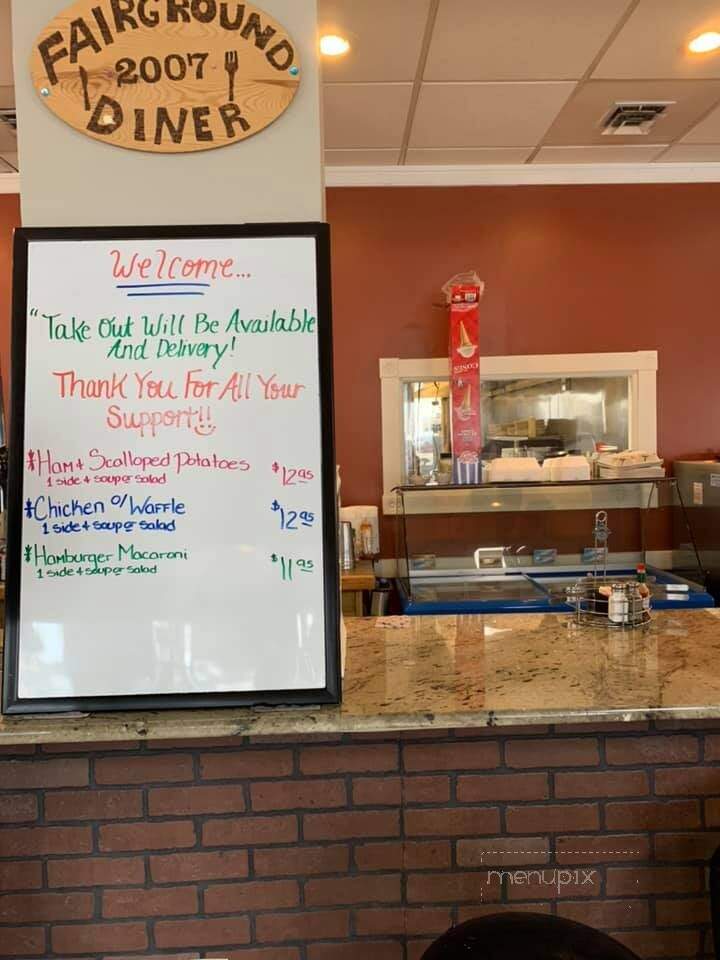 FAIRGROUND
2007
DINER
Welcome...
"Take Out Will Be Available
And Delivery!
Thank You For All Your
Support!!
*Ham + Scalloped Potatoes $12.95
1 side + soup or salad
*Chicken o/ Waffle $12.95
1 side + soup or salad
*Hamburger Macaroni $11.95
1 side + soup or salad
CONES
menupix